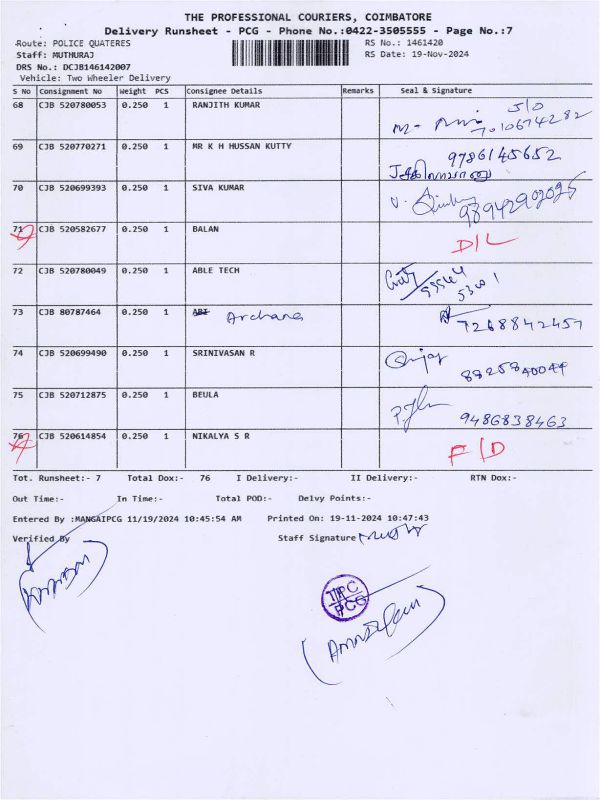 THE PROFESSIONAL COURIERS, COIMBATORE
Delivery Runsheet - PCG - Phone No.:0422-3505555 - Page No.:7
Route: POLICE QUATERES RS No.: 1461420
Staff: MUTHURAJ RS Date: 19-Nov-2024
DRS No.: DCJB146142007
Vehicle: Two Wheeler Delivery
S No Consignment No Weight PCS Consignee Details Remarks Seal & Signature
68 CJB 520780053 0.250 1 RANJITH KUMAR S/O
69 CJB 520770271 0.250 1 MR K H HUSSAN KUTTY 9786145652
70 CJB 520699393 0.250 1 SIVA KUMAR
71 CJB 520582677 0.250 1 BALAN D/L
72 CJB 520780049 0.250 1 ABLE TECH
73 CJB 80787464 0.250 1 ABI Archana 7268842457
74 CJB 520699490 0.250 1 SRINIVASAN R
75 CJB 520712875 0.250 1 BEULA 9486838463
76 CJB 520614854 0.250 1 NIKALYA S R F/D
Tot. Runsheet:- 7 Total Dox:- 76 I Delivery:- II Delivery:- RTN Dox:-
Out Time:- In Time:- Total POD:- Delvy Points:-
Entered By :MANGAIPCG 11/19/2024 10:45:54 AM Printed On: 19-11-2024 10:47:43
Verified By Staff Signature
TPC
PCG